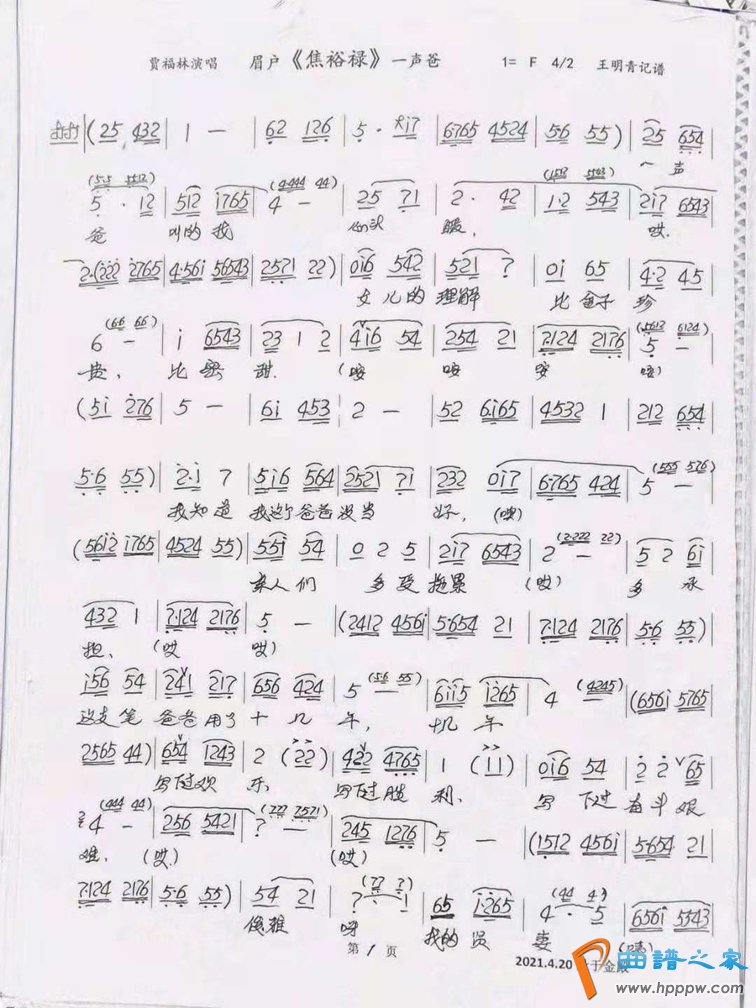 贾福林演唱 眉户《焦裕禄》一声爸 1= F 4/2 王明青记谱
(25 432 | 1 — | 62 126 | 5 · 17 | 6765 4524 | 56 55) | 25 654
一声
5 · 12 | 512 1765 | 4 — | 25 71 | 2 · 42 | 1·2 543 | 217 6543
爸 叫的我 暖, 哎
2·(222 2765 | 4·561 56543 | 2571 22) | 016 542 | 521 7 | 01 65 | 4·2 45
女儿的理解 比金子珍
6 — | 1 6543 | 23 1 2 | 416 54 | 254 21 | 7124 2176 | 5 —
贵, 比 甜
(51 276 | 5 — | 61 453 | 2 — | 52 6165 | 4532 1 | 212 654
5·6 55) | 2·1 7 | 516 564 | 2521 71 | 232 017 | 6·765 424 | 5 —
我知道 我这个爸爸没当 好,
(5612 1765 | 4524 55) | 551 54 | 0 2 5 | 217 6543 | 2 — | 5 2 61
亲人们 多受拖累 (哎) 多承
432 1 | 7·124 2176 | 5 — | (2412 4561 | 5·654 21 | 7·124 2176 | 5·6 55)
担, (哎 哎)
156 54 | 241 217 | 656 424 | 5 — | 6115 1265 | 4 (4245) | (6561 5765
这支笔 爸爸用了十几年, 十几年
2565 44) | 654 1243 | 2 (22) | 422 4765 | 1 (11) | 016 54 | 2· 2 65
写过欢乐, 写过胜利, 写下过 奋斗艰
4 — | 256 5421 | 7 — | 245 1276 | 5 — | (1512 4561 | 5·654 21
难, (哎) (哎)
7·124 2176 | 5·6 55) | 54 21 | 7 · 1 | 65 1·265 | 4 · 5 | 6561 5543
俊雅 呀 我的贤妻
第 1 页
2021.4.20 于金殿
曲谱之家
www.hppw.com